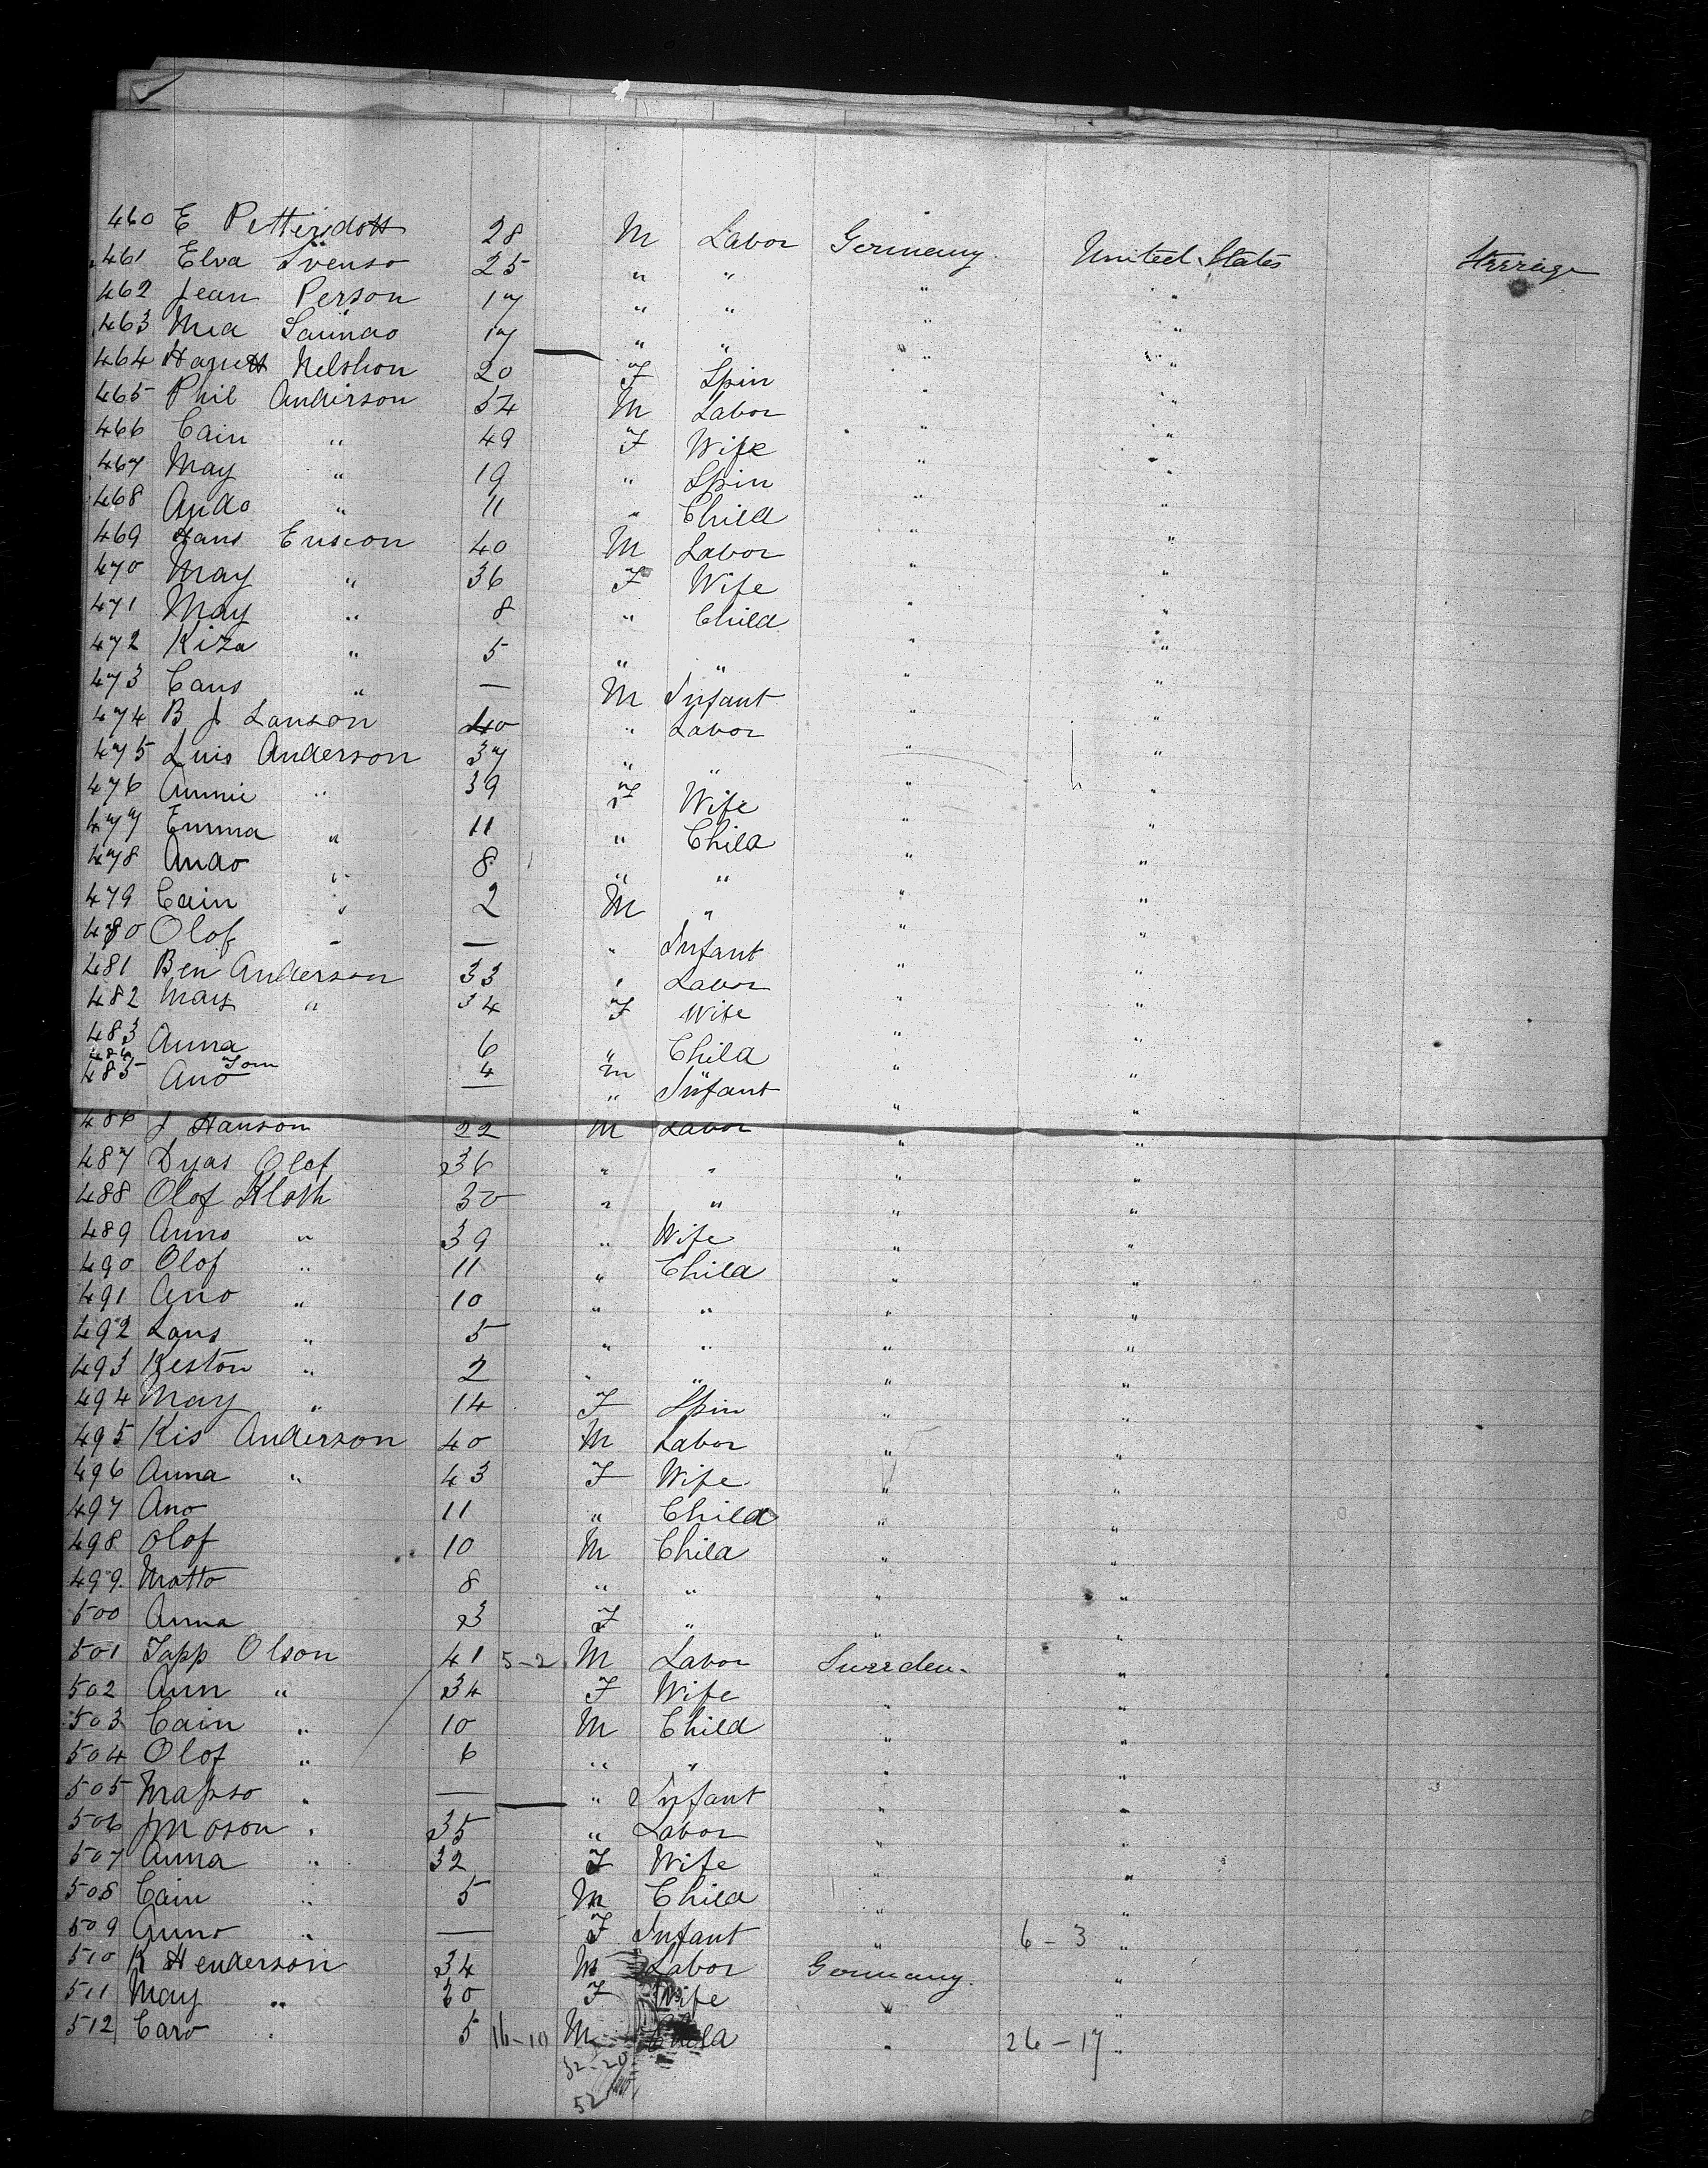 460 E Pettersdott 28 M Labor Germany United States Steerage
461 Elva Svenso 25 " " " "
462 Jean Person 17 " " " "
463 Mia 17 " " " "
464 Nelshon 20 F Spin " "
465 Phil Anderson 54 M Labor " "
466 Cain " 49 F Wife " "
467 May " 19 " Spin " "
468 Ando " 11 " Child " "
469 Hans Ericson 40 M Labor " "
470 May " 36 F Wife " "
471 May " 8 " Child " "
472 Kiza " 5 " " " "
473 Cans " — M Infant " "
474 B J Lanson 40 " Labor " "
475 Luis Anderson 37 " " " "
476 Annie " 39 F Wife " "
477 Emma " 11 " Child " "
478 Ando " 8 " " " "
479 Cain " 2 M " " "
480 Olof " — " Infant " "
481 Ben Anderson 33 " Labor " "
482 May " 34 F Wife " "
483 Anna 6 " Child " "
484 Tom 4 M " " "
485 Ano — " Infant " "
486 J Hanson 22 M Labor " "
487 Dyas Olof 36 " " " "
488 Olof Kloth 30 " " " "
489 Anno " 39 " Wife " "
490 Olof " 11 " Child " "
491 Ano " 10 " " " "
492 Lans " 5 " " " "
493 Keston " 2 " " " "
494 May " 14 F Spin " "
495 Kis Anderson 40 M Labor " "
496 Anna " 43 F Wife " "
497 Ano 11 " Child " "
498 Olof 10 M Child " "
499 Matto 8 " " " "
500 Anna 3 F " " "
501 Japp Olson 41 5-2 M Labor Sweeden "
502 Ann " 34 F Wife " "
503 Cain " 10 M Child " "
504 Olof " 6 " " " "
505 Mapso " — " Infant " "
506 J M Oson " 35 " Labor " "
507 Anna " 32 F Wife " "
508 Cain " 5 M Child " "
509 Anno " — F Infant " 6-3 "
510 K Henderson 34 M Labor Germany "
511 May " 30 F Wife " "
512 Caro " 5 16-10 M Child " 26-17 "
32-20
52